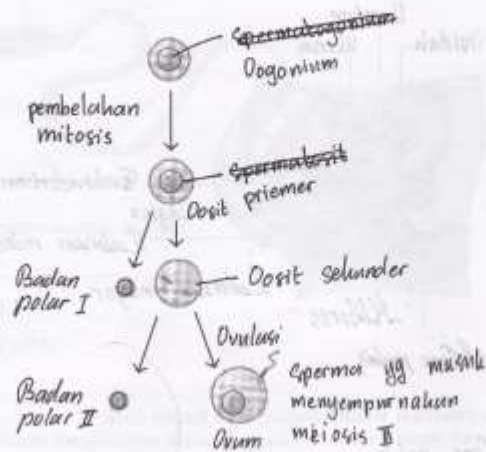 Spermatogonium
Oogonium
pembelahan
mitosis
Spermatosit
Oosit
priemer
Badan
polar I
Oosit sekunder
Ovulasi
Badan
polar II
Ovum
Sperma yg masuk
menyempurnakan
meiosis II